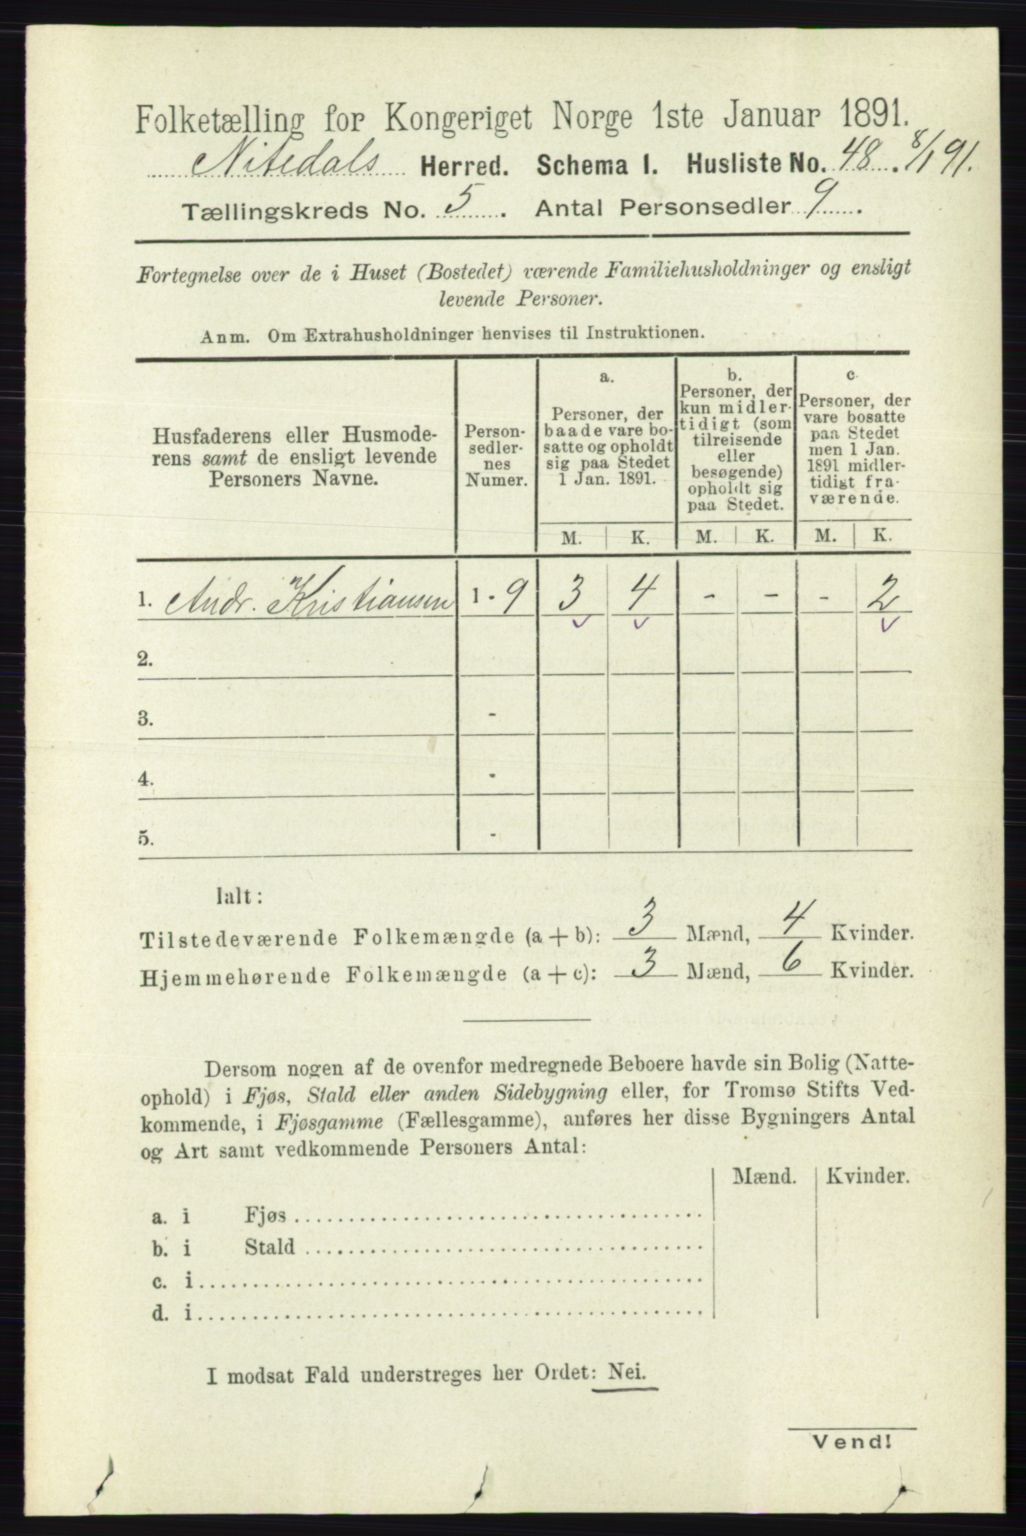 Folketælling for Kongeriget Norge 1ste Januar 1891.
Nitedals Herred. Schema I. Husliste No. 48. 8/1 91.
Tællingskreds No. 5. Antal Personsedler 9.
Fortegnelse over de i Huset (Bostedet) værende Familiehusholdninger og ensligt
levende Personer.
Anm. Om Extrahusholdninger henvises til Instruktionen.
Husfaderens eller Husmode-
rens samt de ensligt levende
Personers Navne.
Person-
sedler-
nes
Numer.
a.
Personer, der
baade vare bo-
satte og opholdt
sig paa Stedet
1 Jan. 1891.
b.
Personer, der
kun midler-
tidigt (som
tilreisende
eller
besøgende)
opholdt sig
paa Stedet.
c.
Personer, der
vare bosatte
paa Stedet
men 1 Jan.
1891 midler-
tidigt fra-
værende.
M. K. M. K. M. K.
1. Andr. Kristiansen 1 - 9 3 4 - - - 2
2.
3. -
4. -
5. -
Ialt:
Tilstedeværende Folkemængde (a + b): 3 Mænd, 4 Kvinder.
Hjemmehørende Folkemængde (a + c): 3 Mænd, 6 Kvinder.
Dersom nogen af de ovenfor medregnede Beboere havde sin Bolig (Natte-
ophold) i Fjøs, Stald eller anden Sidebygning eller, for Tromsø Stifts Ved-
kommende, i Fjøsgamme (Fællesgamme), anføres her disse Bygningers Antal
og Art samt vedkommende Personers Antal:
Mænd. Kvinder.
a. i Fjøs
b. i Stald
c. i
d. i
I modsat Fald understreges her Ordet: Nei.
Vend!